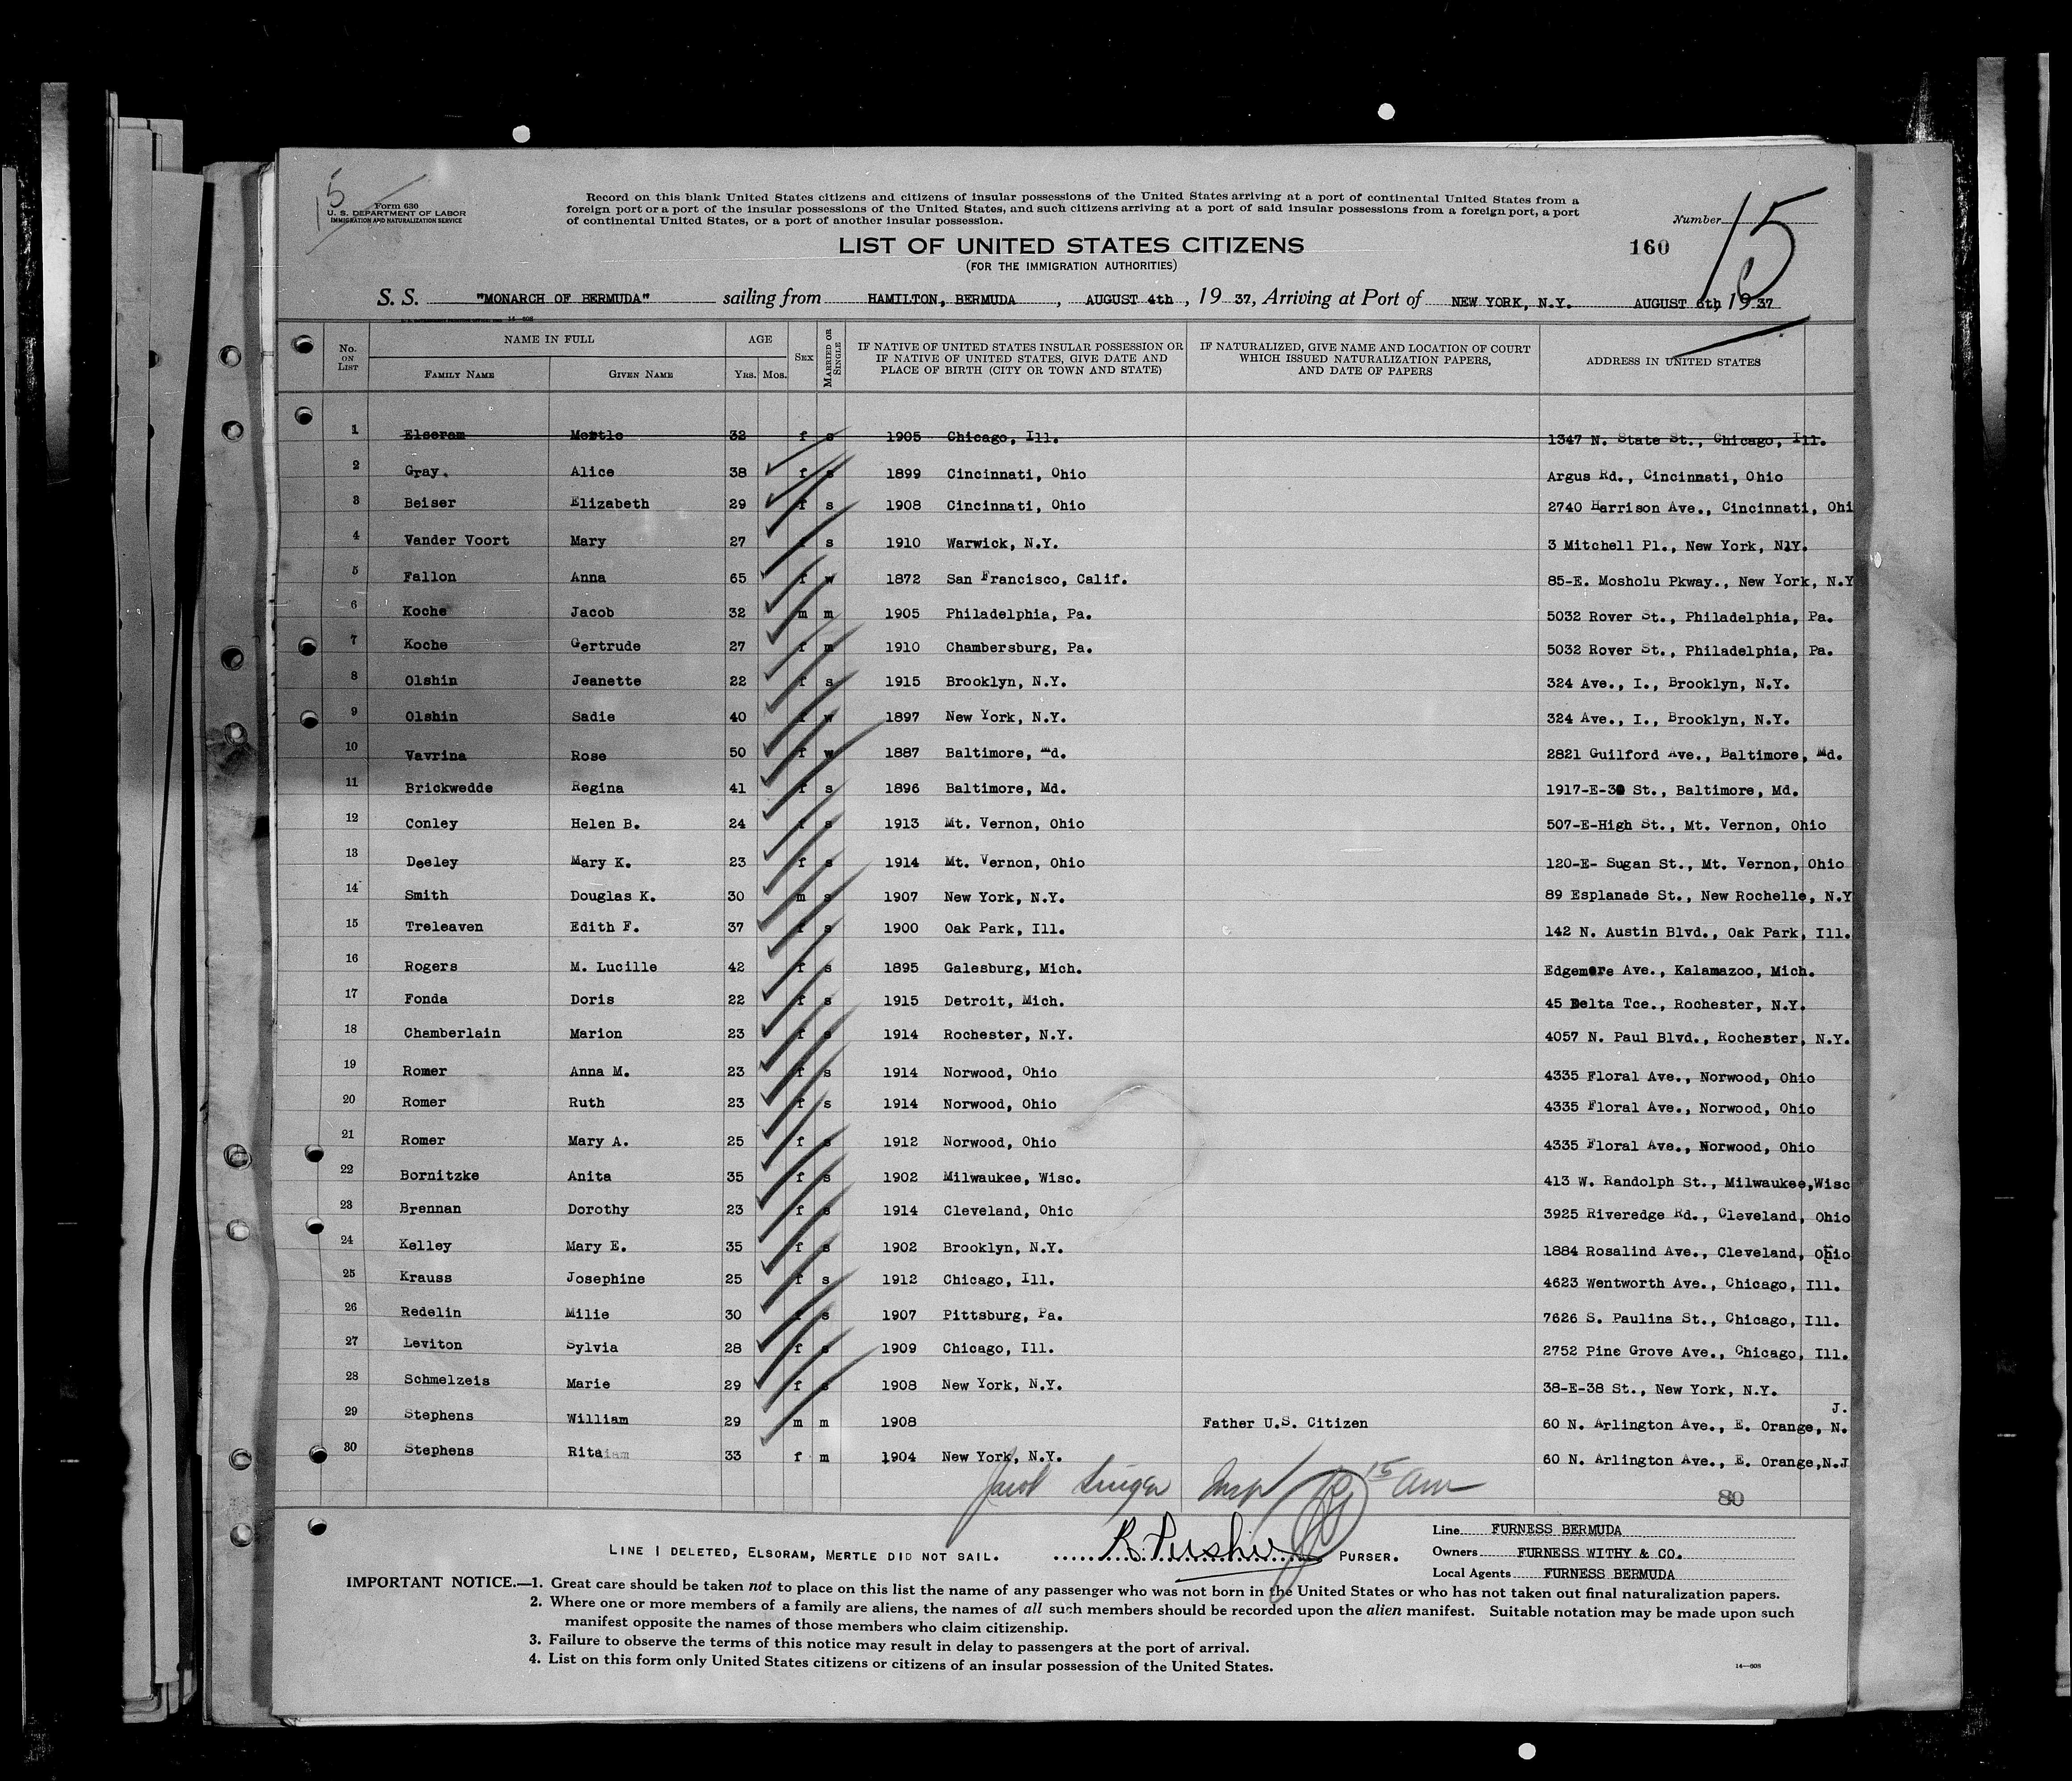 15
Form 630
U. S. DEPARTMENT OF LABOR
IMMIGRATION AND NATURALIZATION SERVICE
Record on this blank United States citizens and citizens of insular possessions of the United States arriving at a port of continental United States from a
foreign port or a port of the insular possessions of the United States, and such citizens arriving at a port of said insular possessions from a foreign port, a port
of continental United States, or a port of another insular possession.
Number 15
160
LIST OF UNITED STATES CITIZENS
(FOR THE IMMIGRATION AUTHORITIES)
S. S. "MONARCH OF BERMUDA" sailing from HAMILTON, BERMUDA, AUGUST 4th, 19 37, Arriving at Port of NEW YORK, N.Y. AUGUST 6th, 19 37
No. ON LIST NAME IN FULL FAMILY NAME GIVEN NAME AGE YRS. MOS. SEX MARRIED OR SINGLE IF NATIVE OF UNITED STATES INSULAR POSSESSION OR IF NATIVE OF UNITED STATES, GIVE DATE AND PLACE OF BIRTH (CITY OR TOWN AND STATE) IF NATURALIZED, GIVE NAME AND LOCATION OF COURT WHICH ISSUED NATURALIZATION PAPERS, AND DATE OF PAPERS ADDRESS IN UNITED STATES
1 Elsoram Mertle 32 f s 1905 Chicago, Ill. 1347 N. State St., Chicago, Ill.
2 Gray. Alice 38 f s 1899 Cincinnati, Ohio Argus Rd., Cincinnati, Ohio
3 Beiser Elizabeth 29 f s 1908 Cincinnati, Ohio 2740 Harrison Ave., Cincinnati, Ohi
4 Vander Voort Mary 27 f s 1910 Warwick, N.Y. 3 Mitchell Pl., New York, N.Y.
5 Fallon Anna 65 f w 1872 San Francisco, Calif. 85-E. Mosholu Pkway., New York, N.Y
6 Koche Jacob 32 m m 1905 Philadelphia, Pa. 5032 Rover St., Philadelphia, Pa.
7 Koche Gertrude 27 f m 1910 Chambersburg, Pa. 5032 Rover St., Philadelphia, Pa.
8 Olshin Jeanette 22 f s 1915 Brooklyn, N.Y. 324 Ave., I., Brooklyn, N.Y.
9 Olshin Sadie 40 f w 1897 New York, N.Y. 324 Ave., I., Brooklyn, N.Y.
10 Vavrina Rose 50 f w 1887 Baltimore, Md. 2821 Guilford Ave., Baltimore, Md.
11 Brickwedde Regina 41 f s 1896 Baltimore, Md. 1917-E-30 St., Baltimore, Md.
12 Conley Helen B. 24 f s 1913 Mt. Vernon, Ohio 507-E-High St., Mt. Vernon, Ohio
13 Deeley Mary K. 23 f s 1914 Mt. Vernon, Ohio 120-E- Sugan St., Mt. Vernon, Ohio
14 Smith Douglas K. 30 m s 1907 New York, N.Y. 89 Esplanade St., New Rochelle, N.Y
15 Treleaven Edith F. 37 f s 1900 Oak Park, Ill. 142 N. Austin Blvd., Oak Park, Ill.
16 Rogers M. Lucille 42 f s 1895 Galesburg, Mich. Edgemere Ave., Kalamazoo, Mich.
17 Fonda Doris 22 f s 1915 Detroit, Mich. 45 Delta Tce., Rochester, N.Y.
18 Chamberlain Marion 23 f s 1914 Rochester, N.Y. 4057 N. Paul Blvd., Rochester, N.Y.
19 Romer Anna M. 23 f s 1914 Norwood, Ohio 4335 Floral Ave., Norwood, Ohio
20 Romer Ruth 23 f s 1914 Norwood, Ohio 4335 Floral Ave., Norwood, Ohio
21 Romer Mary A. 25 f s 1912 Norwood, Ohio 4335 Floral Ave., Norwood, Ohio
22 Bornitzke Anita 35 f s 1902 Milwaukee, Wisc. 413 W. Randolph St., Milwaukee,Wisc
23 Brennan Dorothy 23 f s 1914 Cleveland, Ohio 3925 Riveredge Rd., Cleveland, Ohio
24 Kelley Mary E. 35 f s 1902 Brooklyn, N.Y. 1884 Rosalind Ave., Cleveland, Ohio
25 Krauss Josephine 25 f s 1912 Chicago, Ill. 4623 Wentworth Ave., Chicago, Ill.
26 Redelin Milie 30 f s 1907 Pittsburg, Pa. 7626 S. Paulina St., Chicago, Ill.
27 Leviton Sylvia 28 f s 1909 Chicago, Ill. 2752 Pine Grove Ave., Chicago, Ill.
28 Schmelzeis Marie 29 f s 1908 New York, N.Y. 38-E-38 St., New York, N.Y.
29 Stephens William 29 m m 1908 Father U.S. Citizen 60 N. Arlington Ave., E. Orange, N. J.
30 Stephens Rita 33 f m 1904 New York, N.Y. 60 N. Arlington Ave., E. Orange,N.J
Jacob Singer Insp 10 15 am
80
LINE 1 DELETED, ELSORAM, MERTLE DID NOT SAIL. PURSER.
Line FURNESS BERMUDA
Owners FURNESS WITHY & CO.
Local Agents FURNESS BERMUDA
IMPORTANT NOTICE.—1. Great care should be taken not to place on this list the name of any passenger who was not born in the United States or who has not taken out final naturalization papers.
2. Where one or more members of a family are aliens, the names of all such members should be recorded upon the alien manifest. Suitable notation may be made upon such
manifest opposite the names of those members who claim citizenship.
3. Failure to observe the terms of this notice may result in delay to passengers at the port of arrival.
4. List on this form only United States citizens or citizens of an insular possession of the United States.
14—608